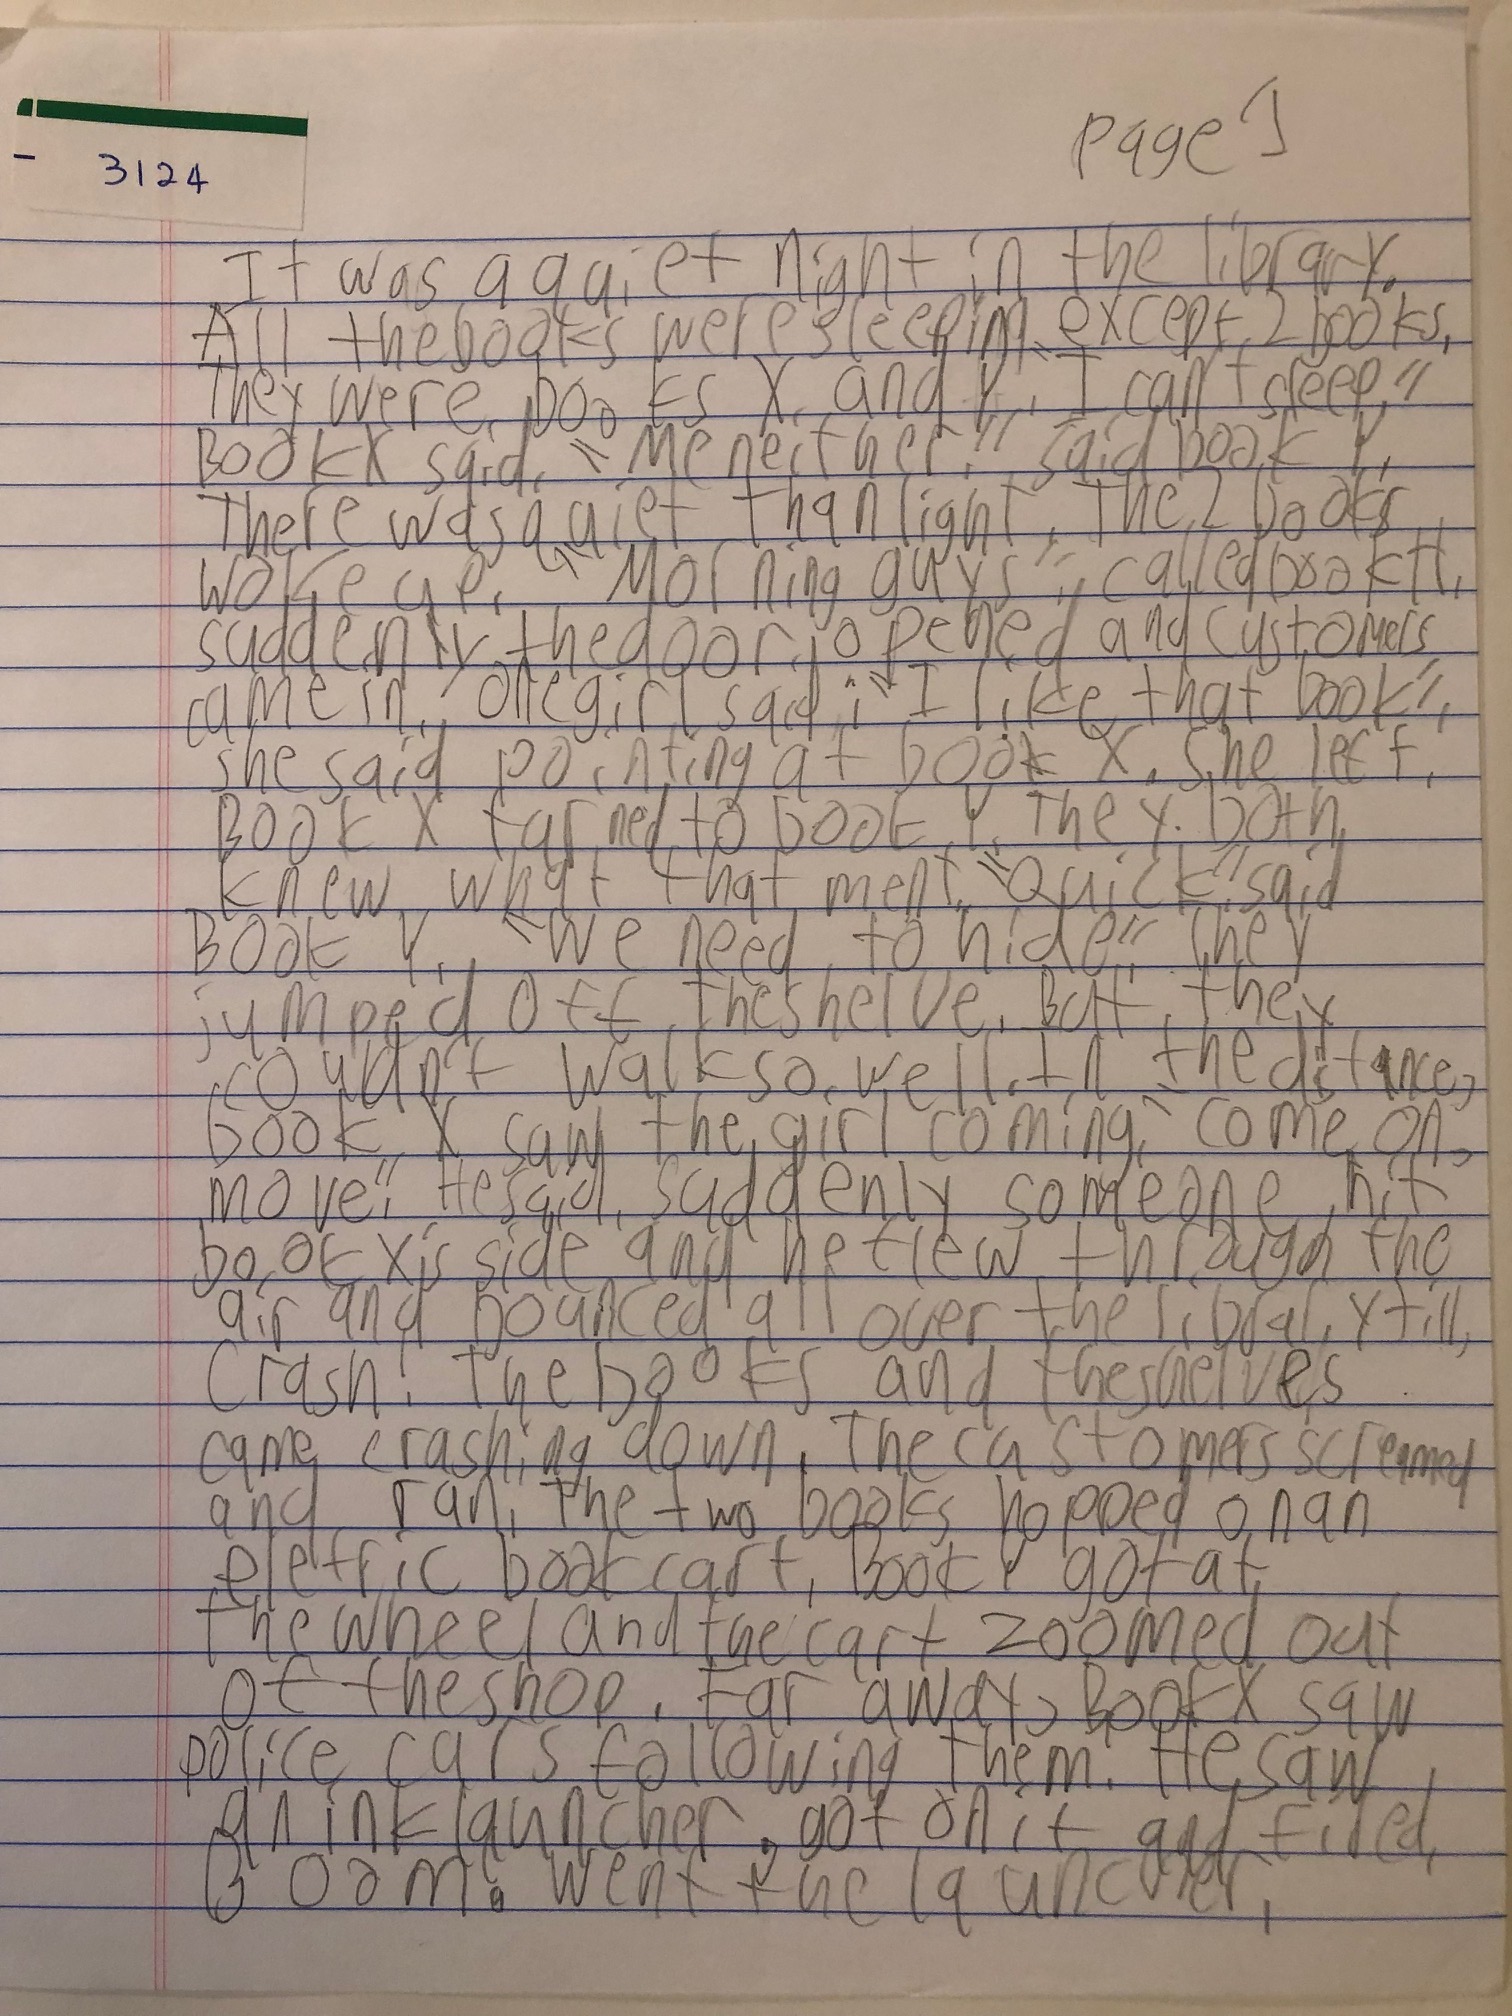 3124
page 1
It was a quiet night in the library.
All the books were sleepim except 2 books.
They were books X and Y. "I can't sleep,"
Book X said. "Me neither." said book Y.
There was quiet than light. The 2 books
woke up. "Morning guys", called book H.
suddenly the door opened and customers
came in. One girl said "I like that book",
she said pointing at book X. She left.
Book X turned to book Y. They both
knew what that ment. "Quick" said
Book Y. "We need to hide" They
jumped off the shelve. But they
couldn't walk so well. In the distance,
book X saw the girl coming. "Come on,
move" He said. Suddenly someone hit
book x's side and he flew through the
air and bounced all over the library till,
Crash! The books and the shelves
came crashing down. The customers screamed
and ran. The two books hopped on an
eletric book cart. Book Y got at
the wheel and the cart zoomed out
of the shop. Far away, Book X saw
police cars following them. He saw
an ink launcher, got on it and fired.
Boom! went the launcher.